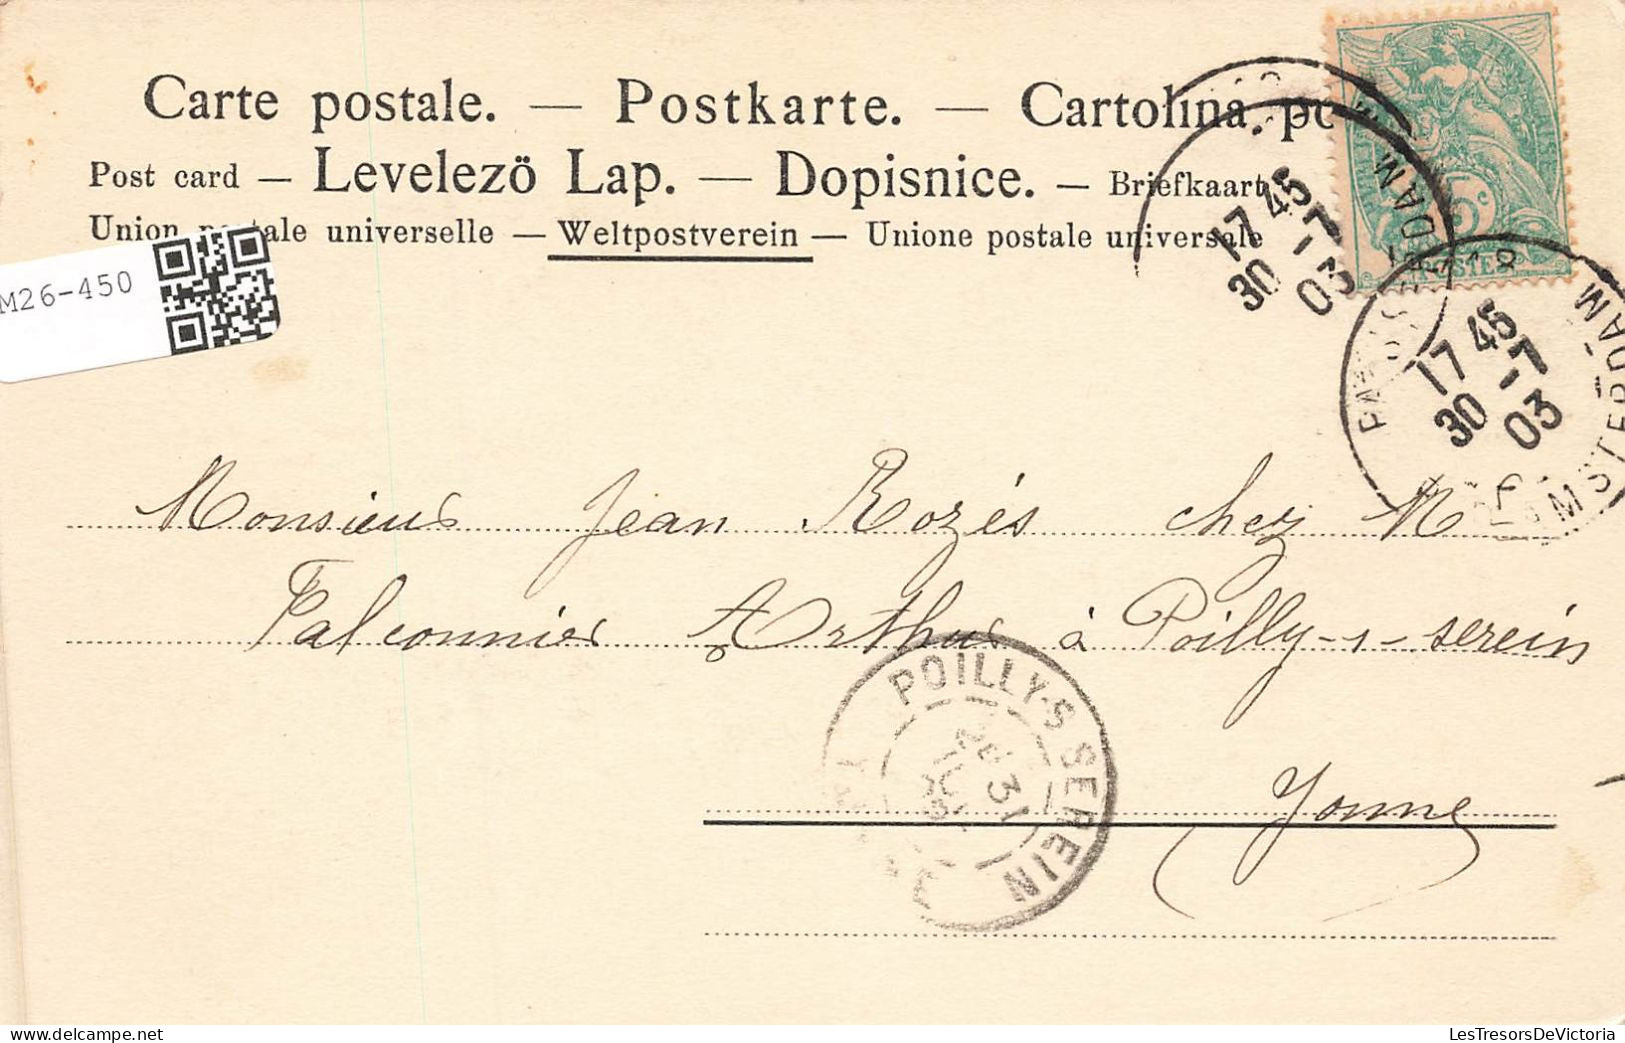 Carte postale. — Postkarte. — Cartolina. po
Post card — Levelezö Lap. — Dopisnice. — Briefkaart
Union postale universelle — Weltpostverein — Unione postale universale
M26-450
POSTES
5c
17 45
30 -7
03
17 45
30 -7
03
AMSTERDAM
Monsieur Jean Rozés chez M
Falconnier Arthur à Poilly-s-serein
POILLY-S-SEREIN
31
Yonne
LesTresorsDeVictoria.com